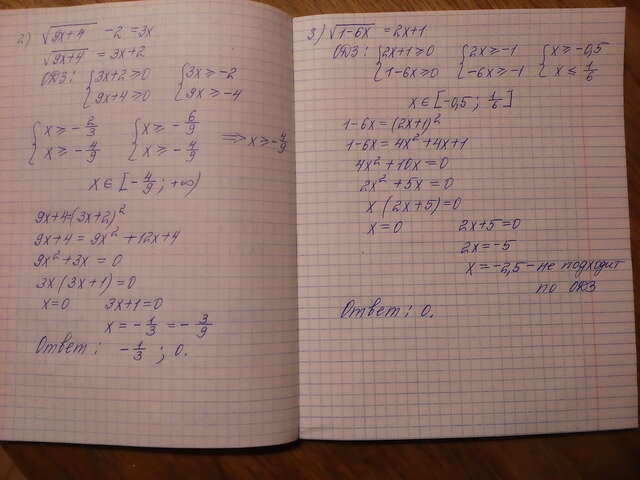 2) √(9x+4) -2 = 3x
√(9x+4) = 3x+2
ОДЗ: { 3x+2 ≥ 0 { 3x ≥ -2
9x+4 ≥ 0 9x ≥ -4
{ x ≥ -2/3 { x ≥ -6/9 ⟹ x ≥ -4/9
x ≥ -4/9 x ≥ -4/9
x ∈ [-4/9 ; +∞)
9x+4=(3x+2)²
9x+4 = 9x² +12x+4
9x² +3x = 0
3x(3x+1)=0
x=0 3x+1=0
x = -1/3 = -3/9
Ответ: -1/3 ; 0.
3) √(1-6x) = 2x+1
ОДЗ: { 2x+1 ≥ 0 { 2x ≥ -1 { x ≥ -0,5
1-6x ≥ 0 -6x ≥ -1 x ≤ 1/6
x ∈ [-0,5 ; 1/6]
1-6x = (2x+1)²
1-6x = 4x² +4x+1
4x² +10x = 0
2x² +5x = 0
x (2x+5)=0
x = 0 2x+5=0
2x=-5
x = -2,5 - не подходит
по ОДЗ
Ответ: 0.